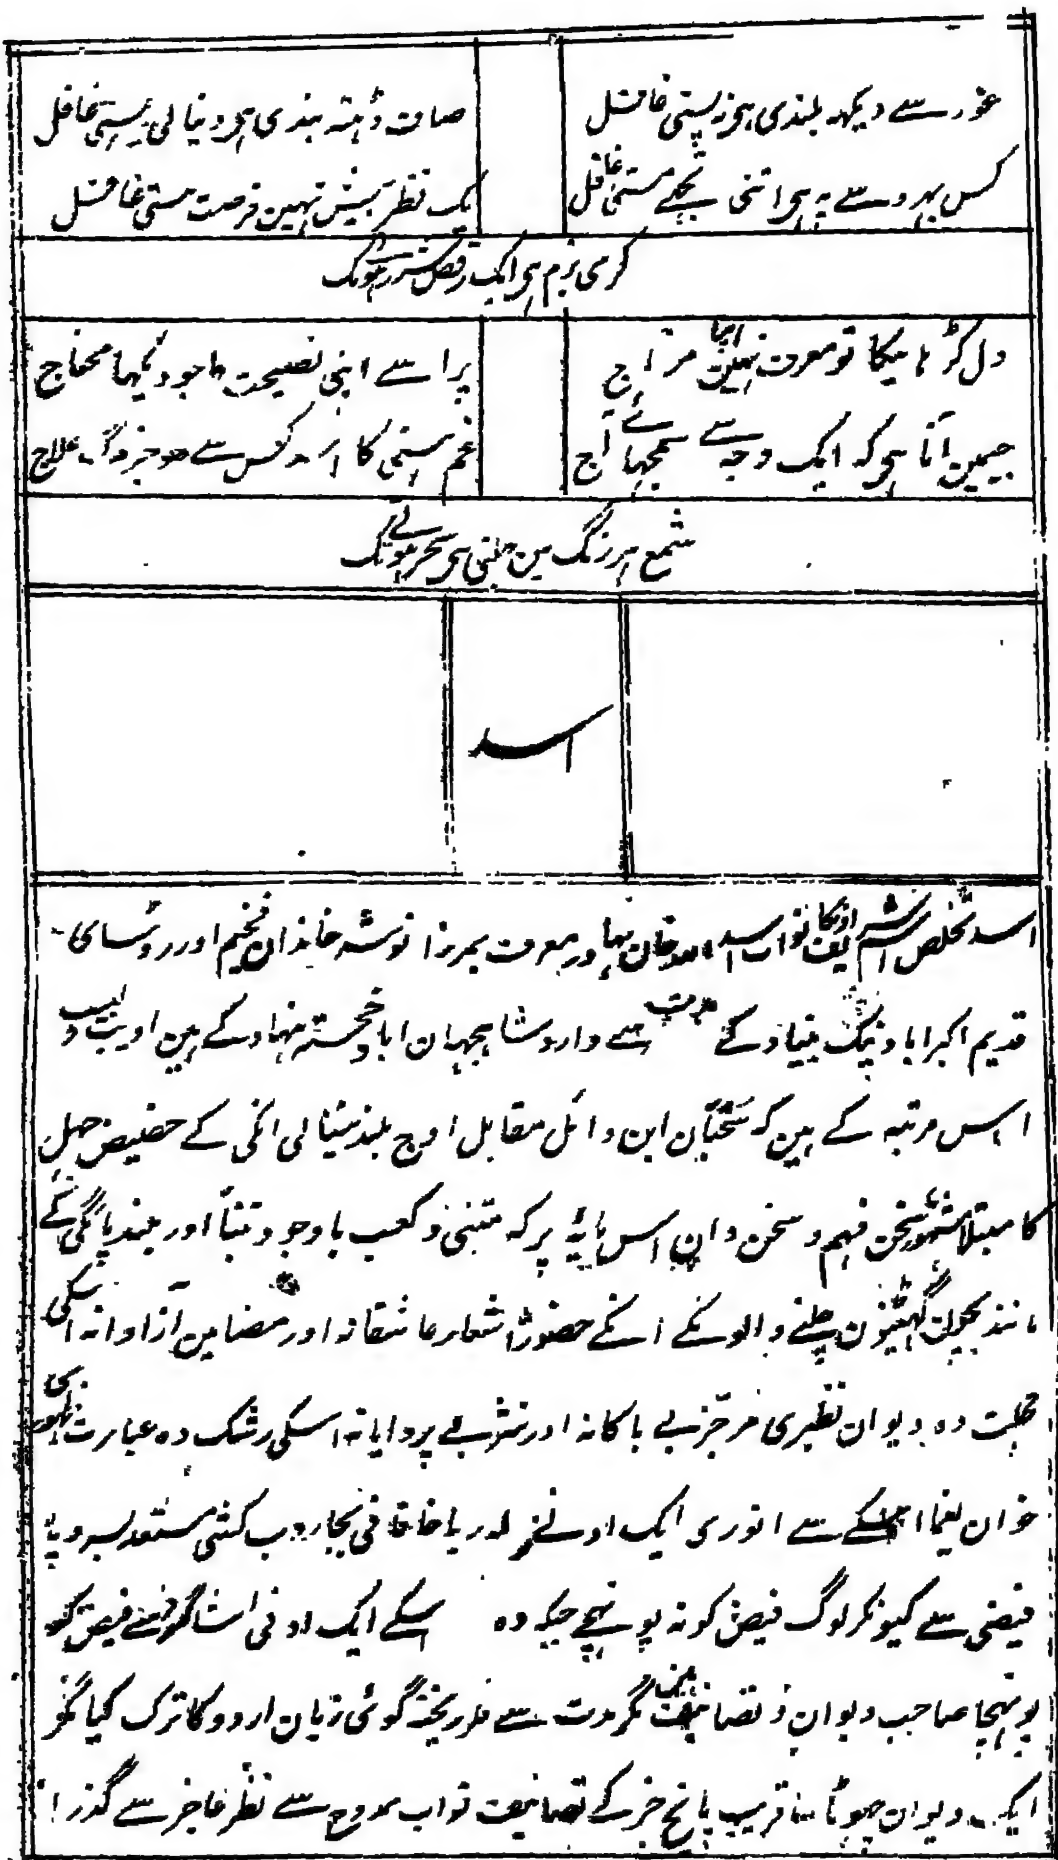 غور سے دیکھہ بلندی ہی نہ پستی غافل
صاف دہندہ بندی ہی دنیا لی بستی غافل
کس بہروسے پہ ہی اتنی تجھے مستی غافل
یک نظر بیش نہین فرصت ہستی غافل
گرمی بزم ہی ایک رقص شرر ہونے تک
دل کڑہا نیکا تو معروف نہین اپنا مزاج
پر اسے اپنی نصیحت کا جو دیکھا محتاج
جیمین آتا ہی کہ ایک وجہ سے سمجھائے آج
غم ہستی کا اسد کس سے ہو جز مرگ علاج
شمع ہر رنگ مین جلتی ہی سحر ہونے تک
اسد
اسد تخلص اسم شریف اونکا نواب اسد اللہ خان بہادر معروف بمرزا نوشہ خاندان فخیم اور روسای
قدیم اکبراباد نیک بنیاد کے مدت سے وارد شاہجہان اباد خجستہ نہاد کے ہین ادیب و لبیب
اس مرتبہ کے ہین کہ سحبان ابن وائل مقابل اوج بلند خیالی انکی کے حضیض جہل
کا مبتلا مشہور سخن فہم و سخن دان اس پایہ پر کہ متنبی و کعب باوجود تنبأ اور بلند پایگی کے
مانند بچون گہٹنیون چلنے والونکے انکے حضور اشعار عاشقانہ اور مضامین آزادانہ اسکی
خجلت دہ دیوان نظیری مرجز بے باکانہ اور نثر بے پروایانہ اسکی رشک دہ عبارت ظہوری
خوان یغما اسکے سے انوری ایک ادنے زلہ ربا خاقانی بجاروب کشی مستعد بسر و پا
فیضی سے کیونکر لوگ فیض کو نہ پونہچے جبکہ وہ اسکے ایک ادنی شاگرد سے فیض کو
پونہچا صاحب دیوان و تصانیف ہین مگر مدت سے فکر ریختہ گوئی زبان اردو کا ترک کیا مگر
ایک دیوان چھوٹا سا قریب پانچ جز کے تصانیف نواب ممدوح سے نظر عاجز سے گذرا